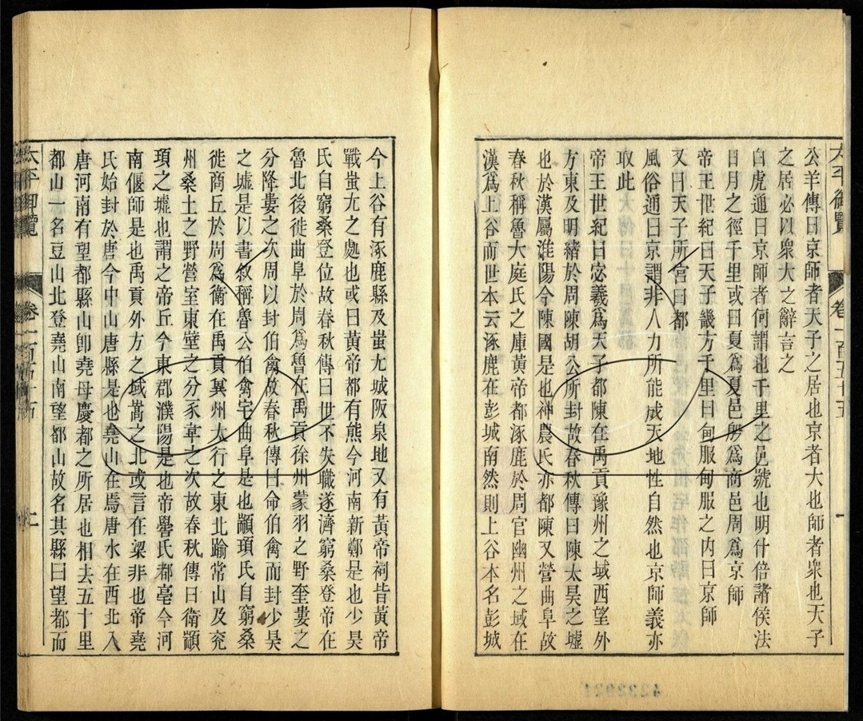 太平御覽 卷一百五十五 一
公羊傳曰京師者天子之居也京者大也師者衆也天子
之居必以衆大之辭言之
白虎通曰京師者何謂也千里之邑號也明什倍諸侯法
日月之徑千里或曰夏爲夏邑殷爲商邑周爲京師
帝王世紀曰天子畿方千里曰甸服甸服之內曰京師
又曰天子所宮曰都
風俗通曰京謂非人力所能成天地性自然也京師義亦
取此
帝王世紀曰宓羲爲天子都陳在禹貢豫州之域西望外
方東及明緒於周陳胡公所封故春秋傳曰陳太昊之墟
也於漢屬淮陽今陳國是也神農氏亦都陳又營曲阜故
春秋稱魯大庭氏之庫黃帝都涿鹿於周官幽州之域在
漢爲上谷而世本云涿鹿在彭城南然則上谷本名彭城
今上谷有涿鹿縣及蚩尤城阪泉地又有黃帝祠皆黃帝
戰蚩尤之處也或曰黃帝都有熊今河南新鄭是也少昊
氏自窮桑登位故春秋傳曰世不失職遂濟窮桑登帝在
魯北後徙曲阜於周爲魯在禹貢徐州蒙羽之野奎婁之
分降婁之次周以封伯禽故春秋傳曰命伯禽而封少昊
之墟是以書敘稱魯公伯禽宅曲阜是也顓頊氏自窮桑
徙商丘於周爲衛在禹貢冀州太行之東北踰常山及兗
州桑土之野營室東壁之分豕韋之次故春秋傳曰衛顓
頊之墟也謂之帝丘今東郡濮陽是也帝嚳氏都亳今河
南偃師是也禹貢外方之域嵩之北或言在梁非也帝堯
氏始封於唐今中山唐縣是也堯山在焉唐水在西北入
唐河南有望都縣山卽堯母慶都之所居也相去五十里
都山一名豆山北登堯山南望都山故名其縣曰望都而
太平御覽 卷一百五十五